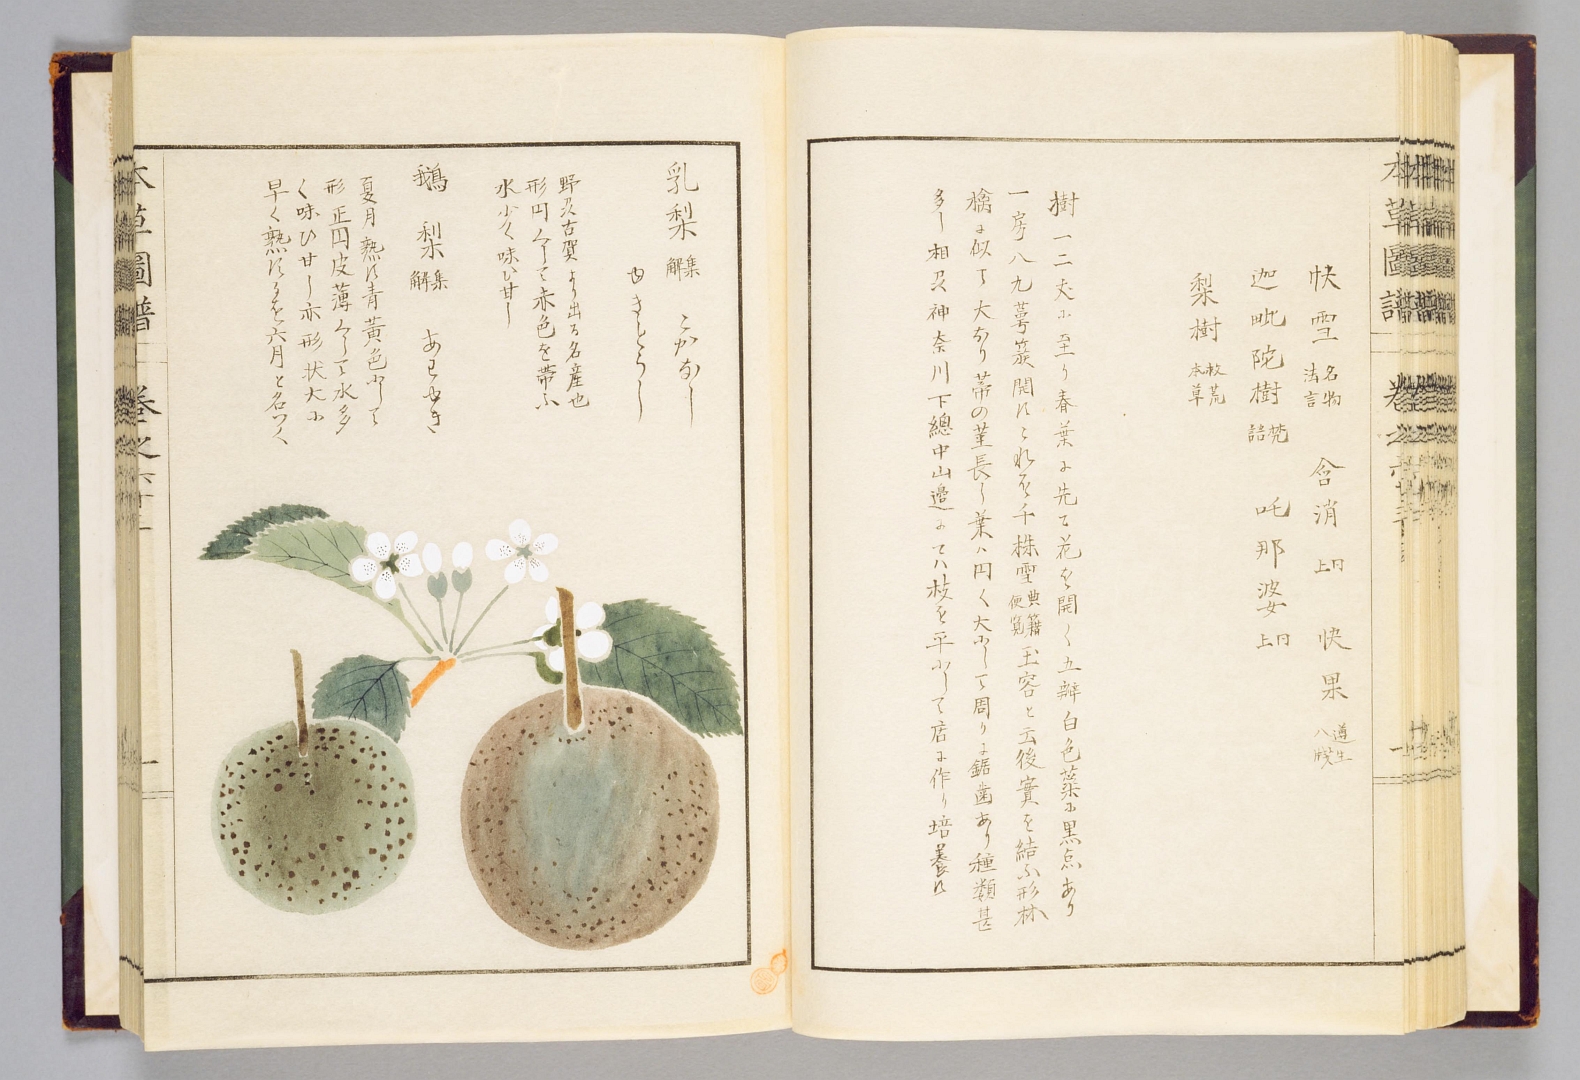 快雪 名物法言 含消 同上 快果 遵生八牋
迦毗陀樹 梵語 吒那婆 同上
梨樹 救荒本草
樹一二丈に至り春葉に先て花を開く五瓣白色蘂に黒点あり
一房八九萼簇開す これを千株雪 典籍便覧 玉容と云後實を結ふ形林
檎に似て大なり蒂の莖長し葉ハ円く大にして周りに鋸歯あり種類甚
多し相及神奈川下總中山邊にてハ枝を平にして店に作り培養す
乳梨 集解 こがなし
ゆきとうし
野及古賀より出る名産也
形円くして赤色を帯ふ
水少く味ひ甘し
鵝梨 集解 あわゆき
夏月熟す青黄色にして
形正円皮薄くして水多
く味ひ甘し亦形状大に
早く熟するを六月と名つく
本草圖譜 巻之六十三